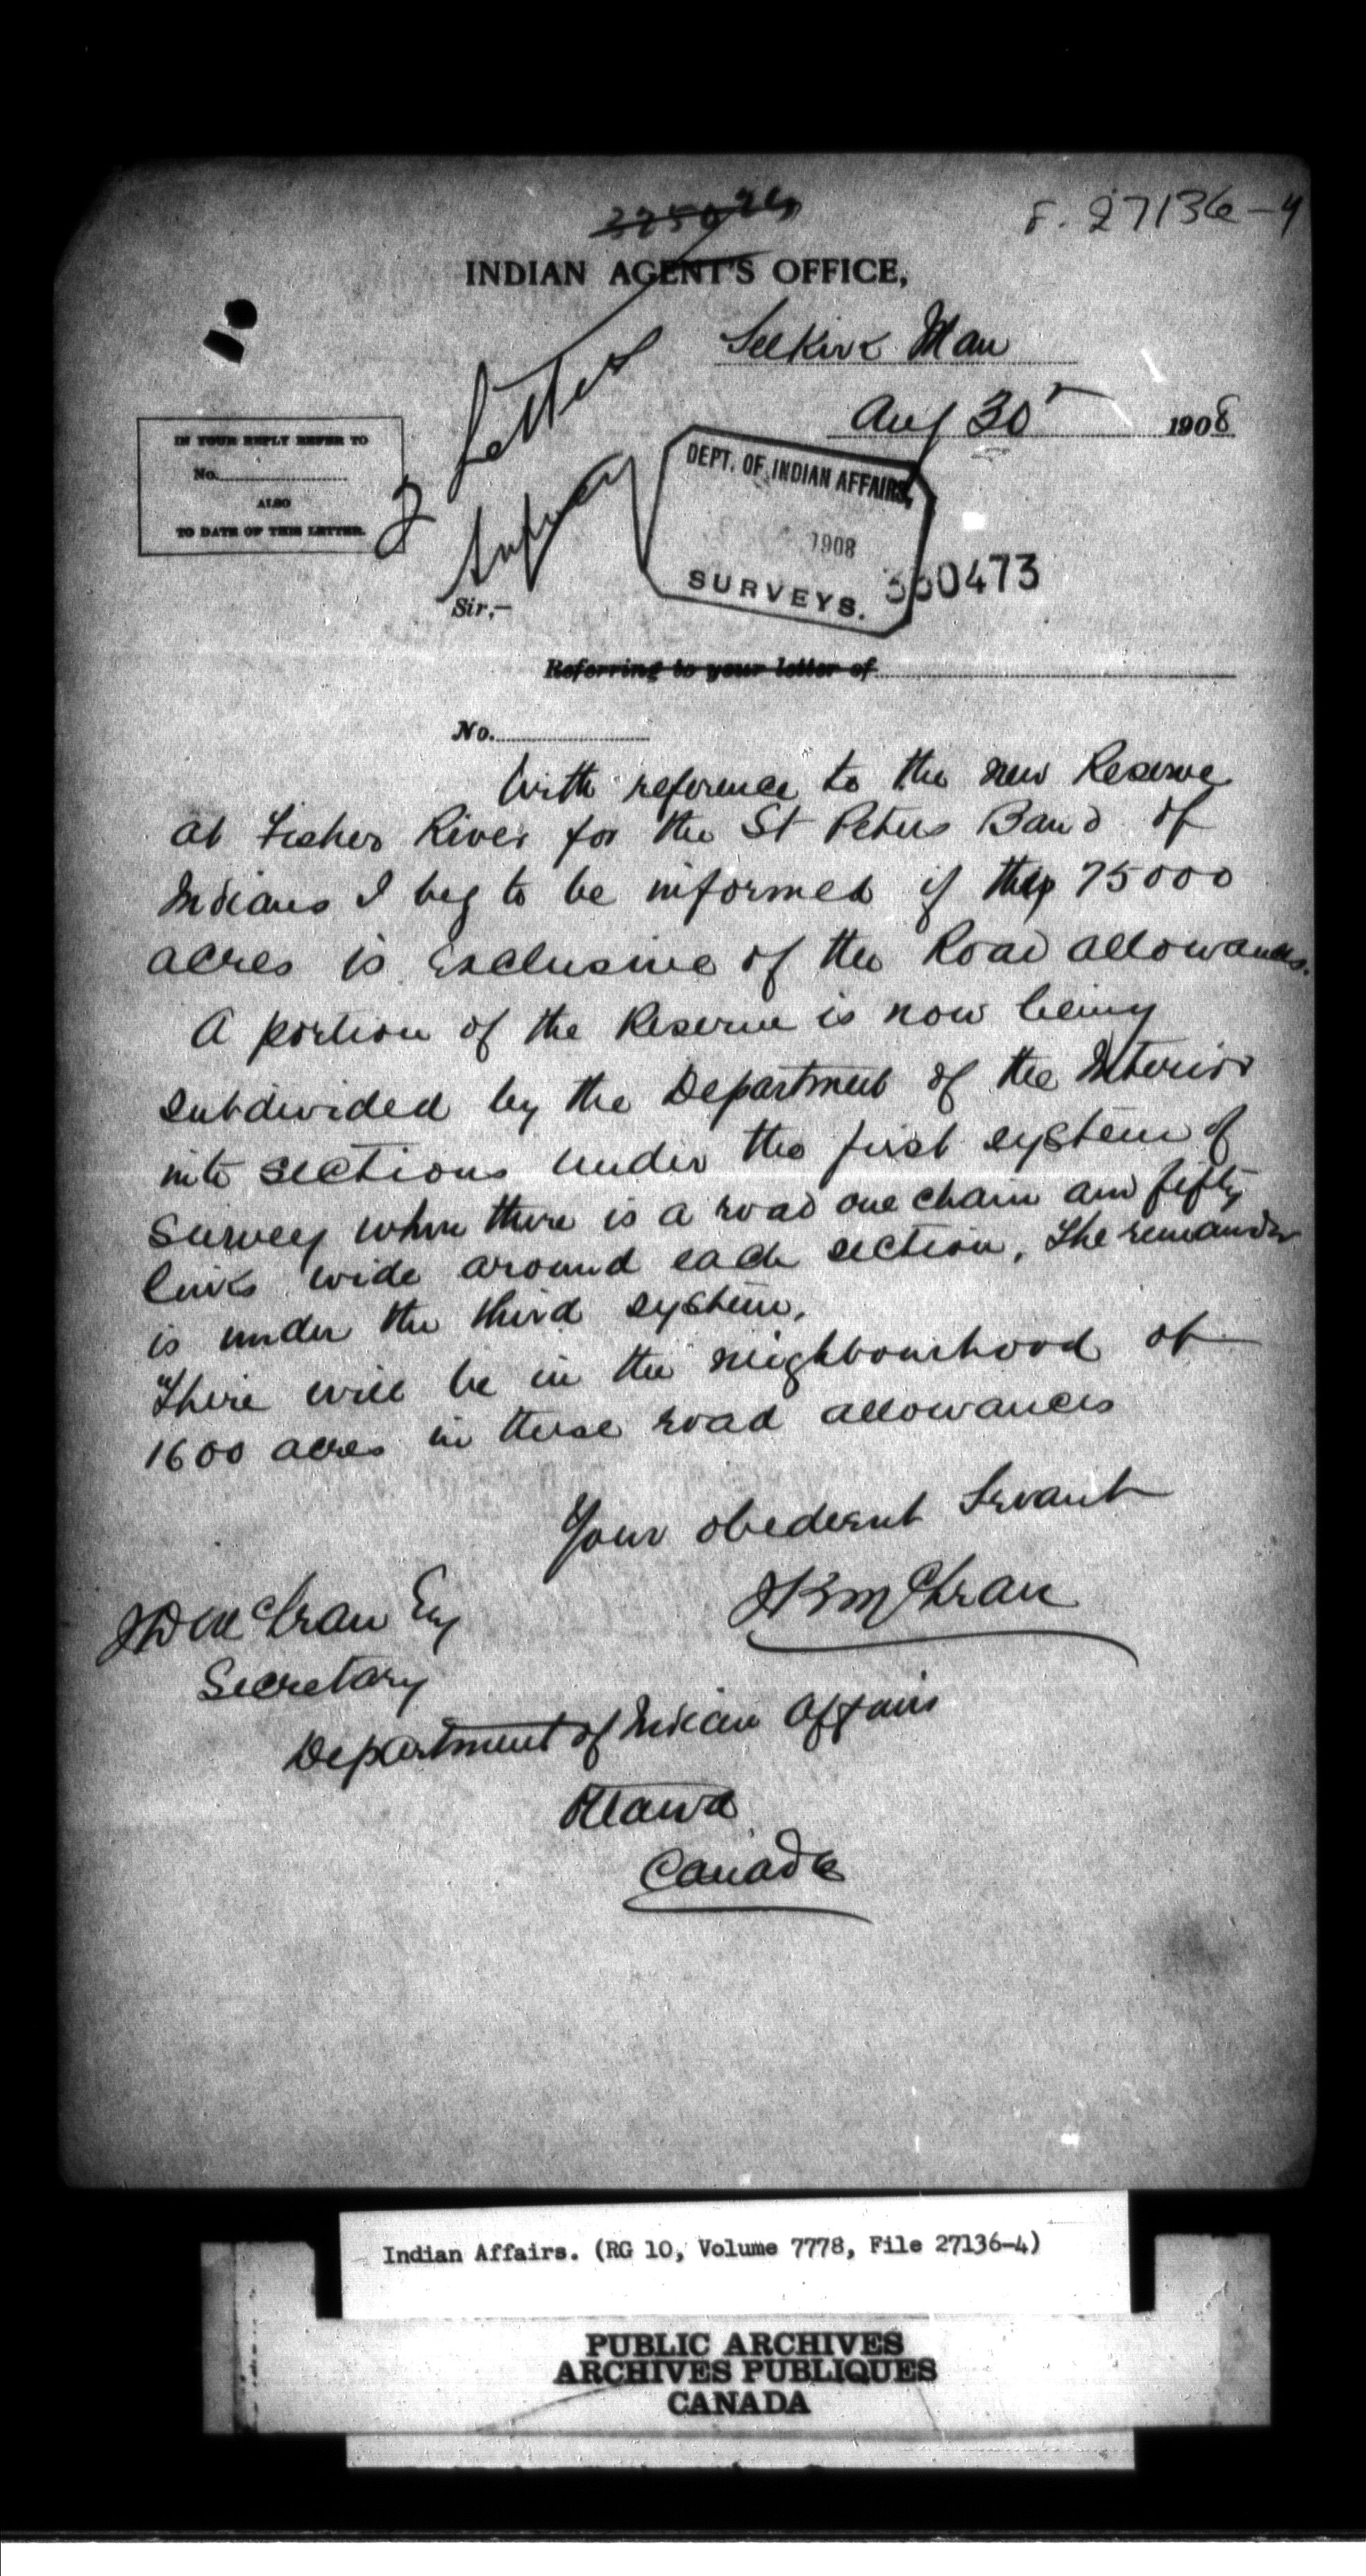 F. 27136-4
INDIAN AGENT'S OFFICE,
Selkirk Man
Aug 30 1908
IN YOUR REPLY REFER TO
No.
ALSO
TO DATE OF THIS LETTER.
2 Letters
DEPT. OF INDIAN AFFAIRS,
1908
SURVEYS.
330473
Sir,-
Referring to your letter of
No.
With reference to the new Reserve
at Fisher River for the St Peters Band of
Indians I beg to be informed if the 75000
acres is exclusive of the Road allowances.
A portion of the Reserve is now being
subdivided by the Department of the Interior
into sections under the first system of
survey where there is a road one chain and fifty
links wide around each section, The remainder
is under the third system.
There will be in the neighbourhood of
1600 acres in these road allowances
Your obedient Servant
J D McLean Esq
Secretary
Department of Indian Affairs
Ottawa
Canada
Indian Affairs. (RG 10, Volume 7778, File 27136-4)
PUBLIC ARCHIVES
ARCHIVES PUBLIQUES
CANADA